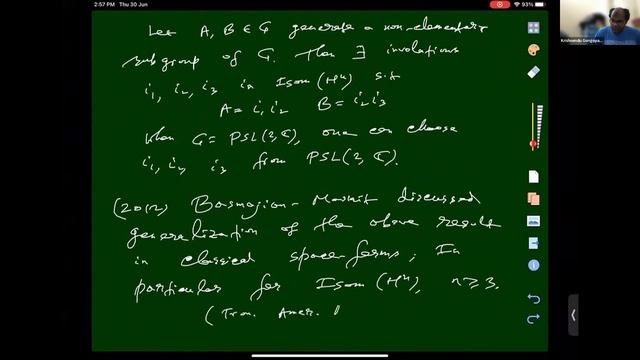 2:57 PM Thu 30 Jun
93%
Let A, B ∈ G generate a non-elementary
subgroup of G. Then ∃ involutions
i₁, i₂, i₃ in Isom(Hⁿ) s.t
A = i₁i₂ B = i₂i₃
When G = PSL(2, ℂ), one can choose
i₁, i₂, i₃ from PSL(2, ℂ).
(2012) Basmajian-Maskit discussed
generalization of the above result
in classical space forms; In
particular for Isom(Hⁿ), n ≥ 3.
(Tran. Amer.